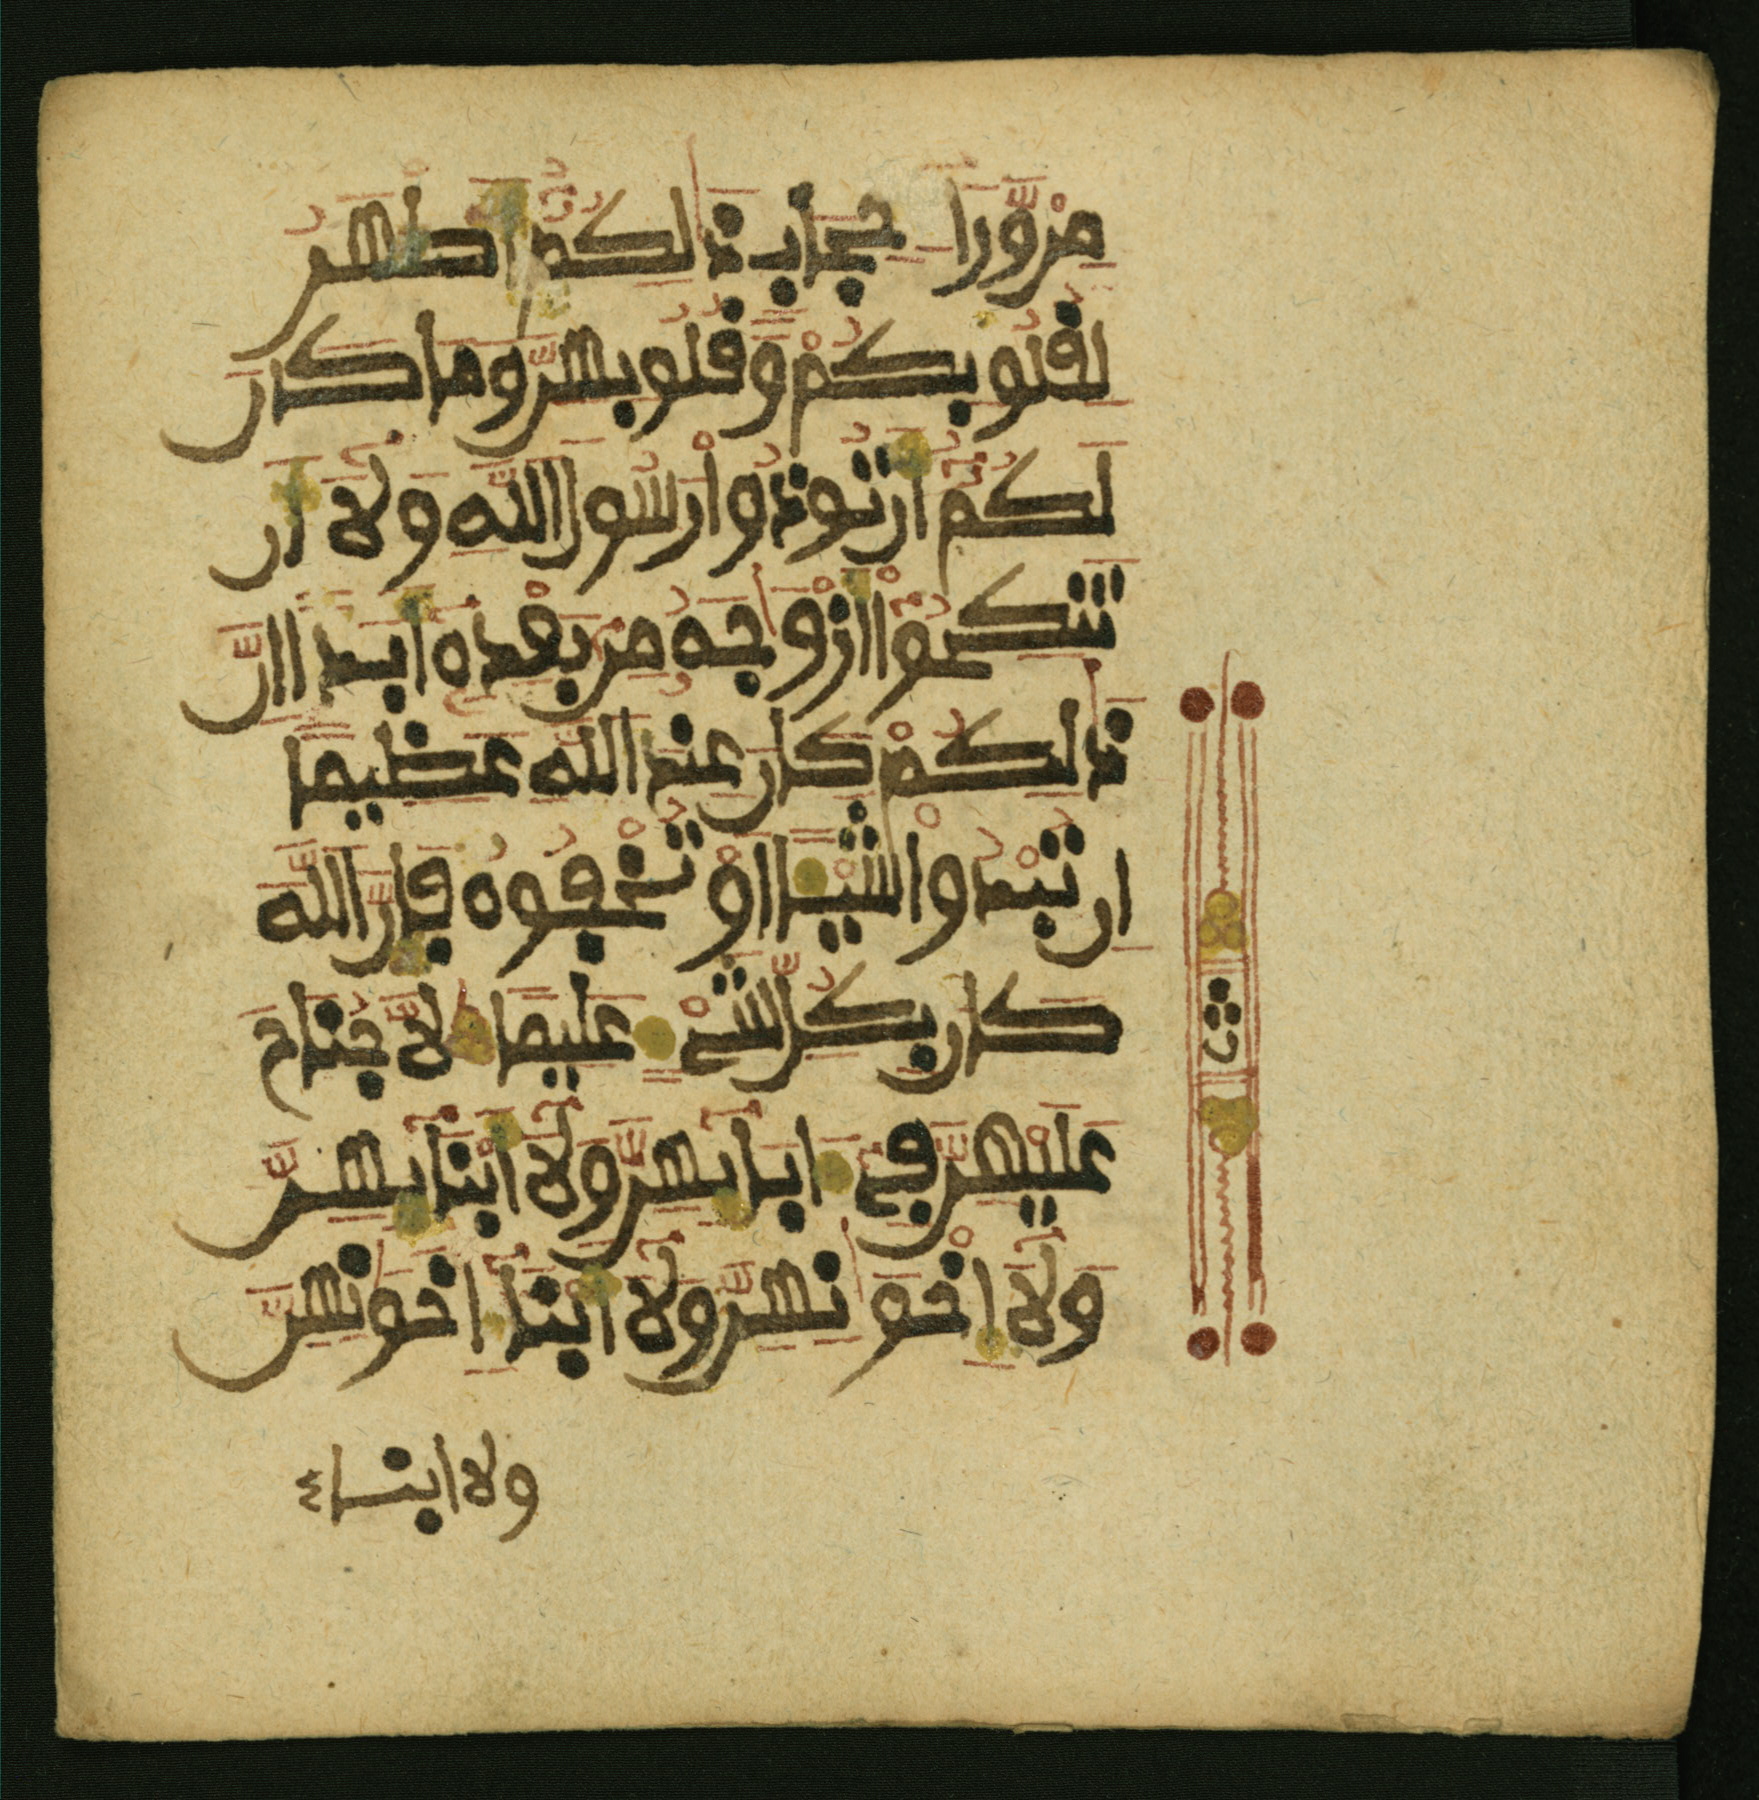 من ورا حجاب ذلكم اطهر
لقلوبكم وقلوبهن وما كان
لكم ان توذوا رسول الله ولا ان
تنكحوا ازوجه من بعده ابدا ان
ذلكم كان عند الله عظيما
ان تبدوا شيا او تخفوه فان الله
كان بكل شي عليما لا جناح
عليهن في ابايهن ولا ابنايهن
ولا اخونهن ولا ابنا اخونهن
ولا ابناء